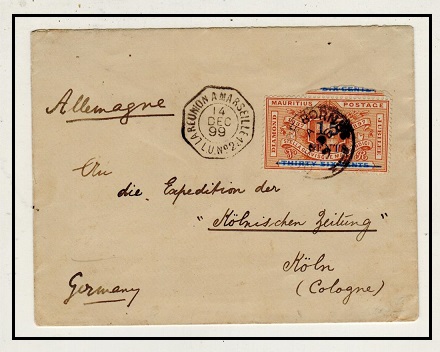 SIX CENTS
MAURITIUS POSTAGE
DIAMOND
JUBILEE
THIRTY SIX CENTS
LA RÉUNION A MARSEILLE
14
DEC
99
L.U. Nº 2
Allemagne
An
die Expedition der
"Kölnischen Zeitung"
Köln
(Cologne)
Germany